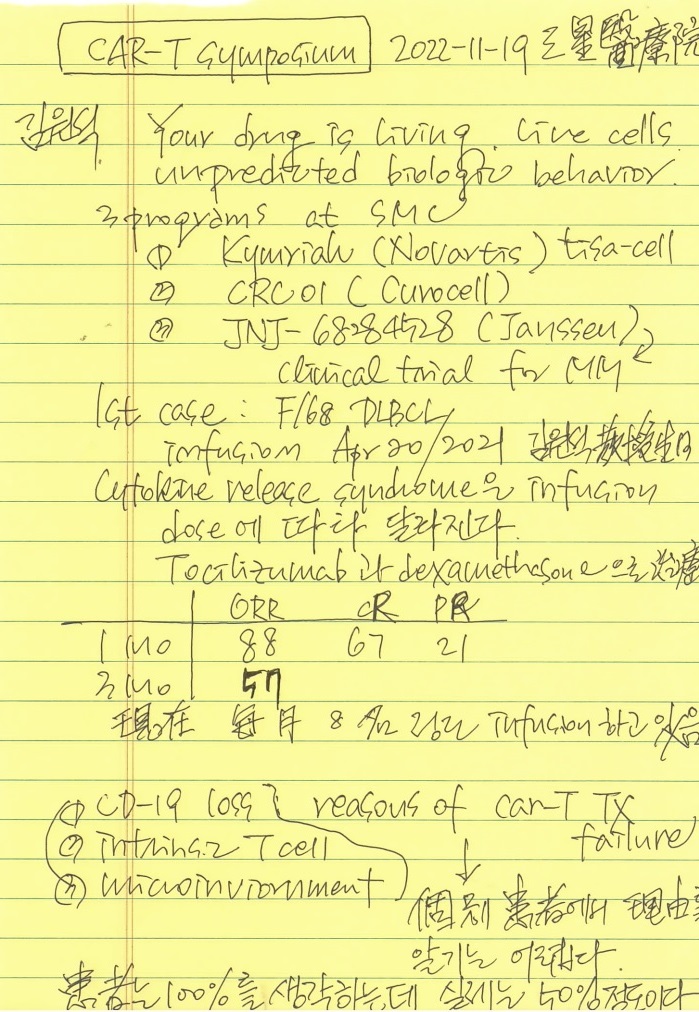 CAR-T symposium 2022-11-19 三星醫療院
김원석 Your drug is living. Live cells.
unpredicted biologic behavior.
3 programs at SMC
① Kymriah (Novartis) tisa-cell
② CRC01 (Curocell)
③ JNJ-68284528 (Janssen)
clinical trial for MM
1st case : F/68 DLBCL
infusion Apr 20/2021 김원석
Cytokine release syndrome은 infusion
dose에 따라 달라진다.
Tocilizumab과 dexamethasone으로 治療
ORR CR PR
1 mo 88 67 21
3 mo 57
現在 每月 8名 정도 infusion하고 있음
① CD-19 loss reasons of car-T Tx
② intrinsic T cell failure
③ microinviornment
個別 患者에서 理由를
알기는 어렵다.
患者는 100%를 생각하는데 실제는 50%정도이다